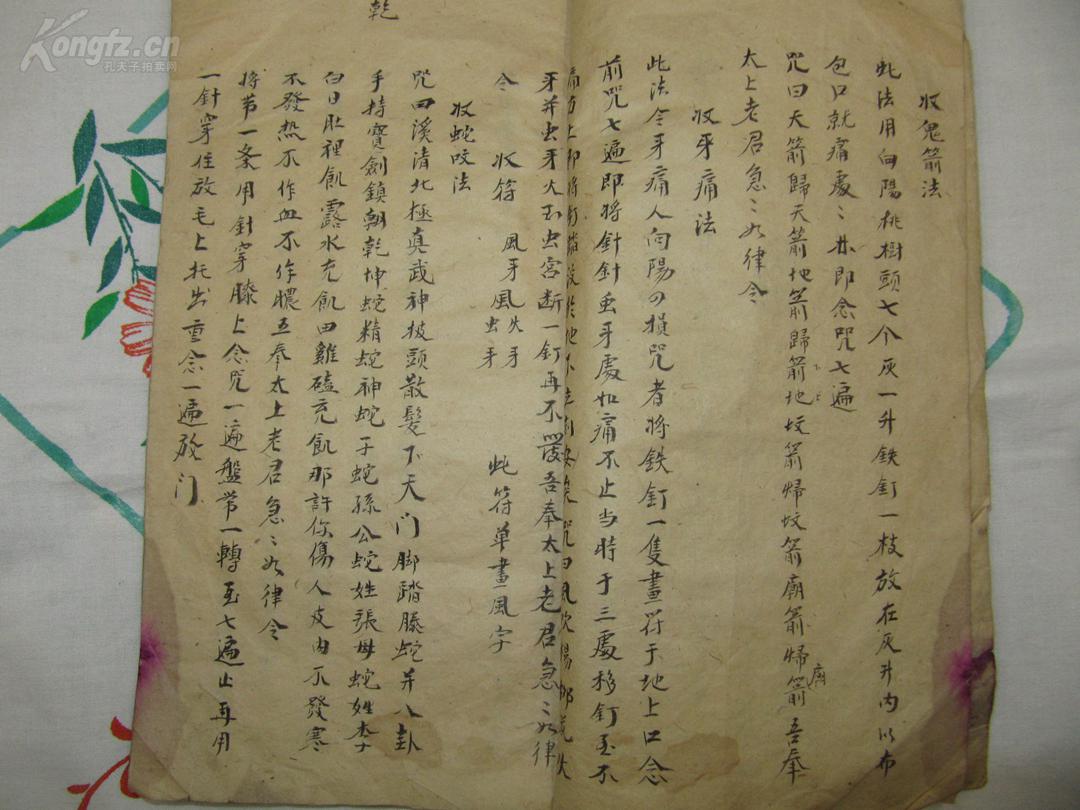 乾
收鬼箭法
此法用向陽桃樹頭七个灰一升鉄釘一枝放在灰升內以布
包口就痛處〻亦即念咒七遍
咒曰天箭歸天箭地箭歸箭地坟箭帰坟箭廟箭帰箭廟吾奉
太上老君急〻如律令
收牙痛法
此法令牙痛人向陽の損咒者將鉄釘一隻畫符于地上口念
前咒七遍即將針針虫牙處如痛不止当時于三處移釘至不
咒曰風
牙并虫牙火玉虫宮断一釘再不吾奉太上老君急〻如律
令
收符 風牙風火牙虫牙 此符单畫風字
收蛇咬法
咒曰溪清北極真武神披頭散髮下天门脚踏滕蛇并八卦
手持寶劍鎮朝乾坤蛇精蛇神蛇子蛇孫公蛇姓張母蛇姓李
白日肚裡飢露水充飢田雞磕充飢那許你傷人皮肉不發寒
不發热不作血不作膿吾奉太上老君急〻如律令
将茅一条用針穿膝上念咒一遍盤茅一轉至七遍止再用
一針穿住放毛上托出重念一遍放门
Kongfz.cn
孔夫子拍卖网